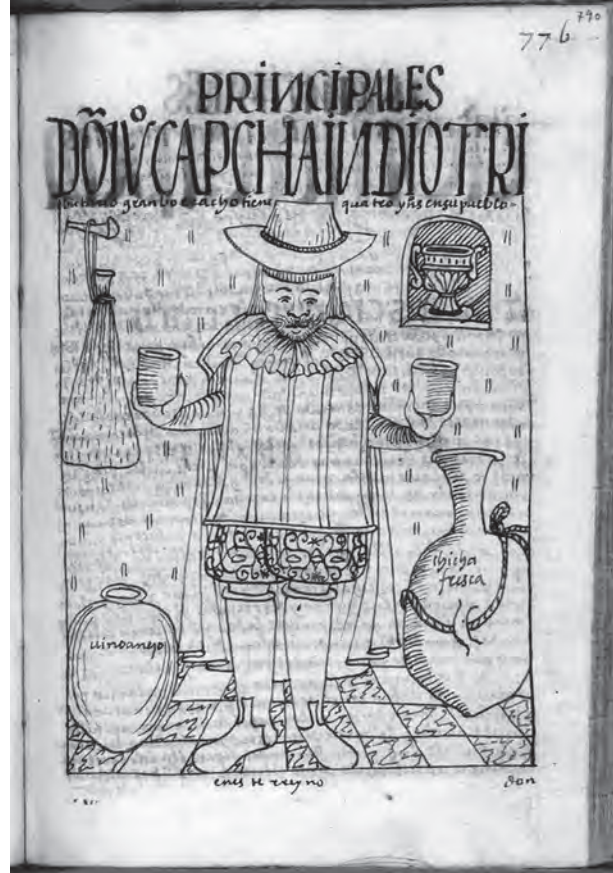 790
776
PRINCIPALES
DÕ JUº CAPCHA INDIO TRI
butario gran borracho tiene quatro yns en su pueblo
chicha
fresca
uino anejo
en este rreyno
don